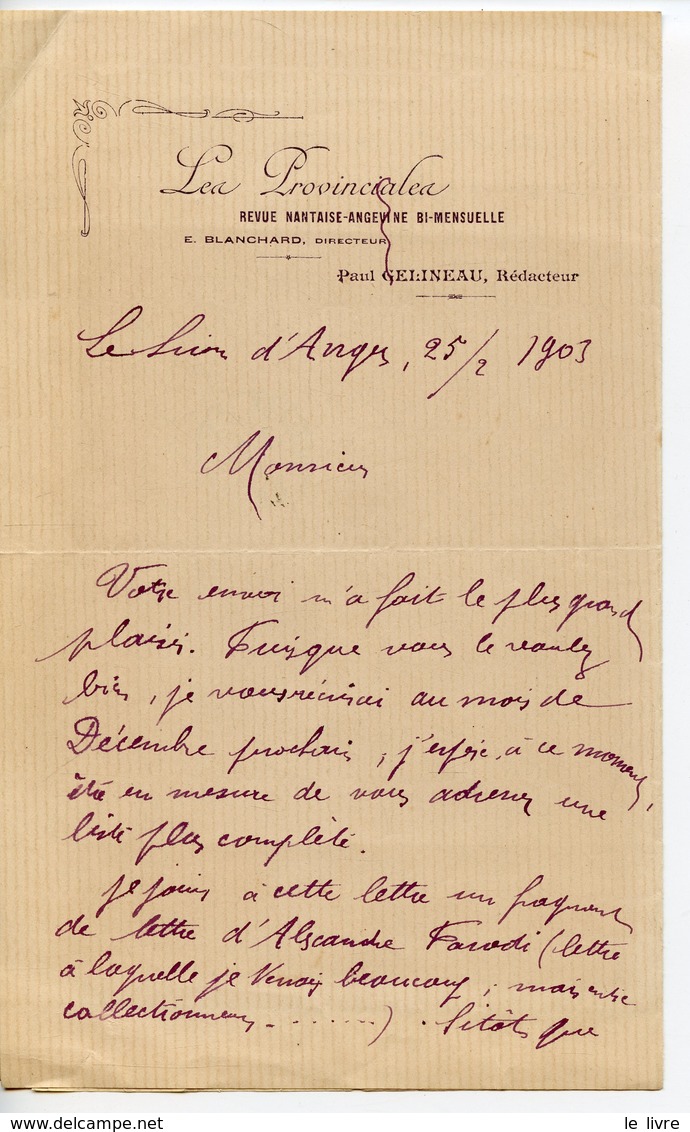 Les Provinciales
REVUE NANTAISE-ANGEVINE BI-MENSUELLE
E. BLANCHARD, DIRECTEUR
Paul GELINEAU, Rédacteur
Le Lion d'Angers, 25/2 1903
Monsieur
Votre envoi m'a fait le plus grand
plaisir. Puisque vous le voulez
bien, je vous récrirai au mois de
Décembre prochain, j'espère, à ce moment,
être en mesure de vous adresser une
liste plus complète.
Je joins à cette lettre un fragment
de lettre d'Alexandre Parodi (lettre
à laquelle je tenais beaucoup ; mais entre
collectionneurs ........) . Sitôt que
www.delcampe.net
le livre